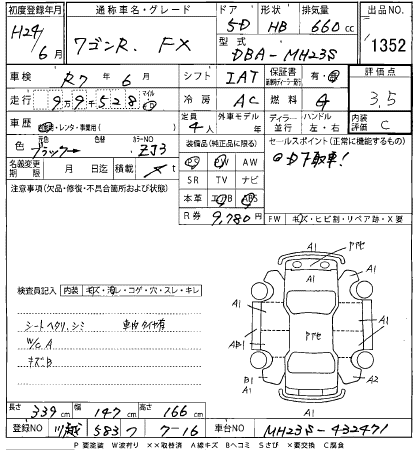 初度登録年月 通称車名・グレード ドア 形状 排気量 出品NO
H24/6月 ワゴンR. FX 5D HB 660cc
型式 DBA-MH23S 1352
車検 R7年6月 シフト IAT 保証書 有・無 評価点
走行 9万9千528 マイル km 冷房 AC 燃料 3.5
車歴 自家・レンタ・事業用( ) 定員 4人 外車モデル 年 ディーラー 並行 ハンドル 左・右 内装評価 C
色 元色 ブラック 色替 カラーNO ZJ3 装備品(純正品に限る) セールスポイント(正常に機能するもの)
名義変更期限 月 日迄 積載 t PS PW AW @D下取車!
注意事項(欠品・修復・不具合箇所および状態) SR TV ナビ
本革 エアB ABS
R券 9,780円 FW キズ・ヒビ割・リペア跡・X要
検査員記入 内装 キズ・汚レ・コゲ・穴・スレ・キレ
シートヘタリ、シミ 車内タイヤ有
W/C A
キズB
A1 A1 A1 A1 AB1 A1 B1 A2 A1
長さ 339cm 幅 147cm 高さ 166cm
登録NO 川越 583 つ 7-16 車台NO MH23S-432471
P 要塗装 W波有り ××取替済 A線キズ Bヘコミ Sさび ×要交換 C腐食